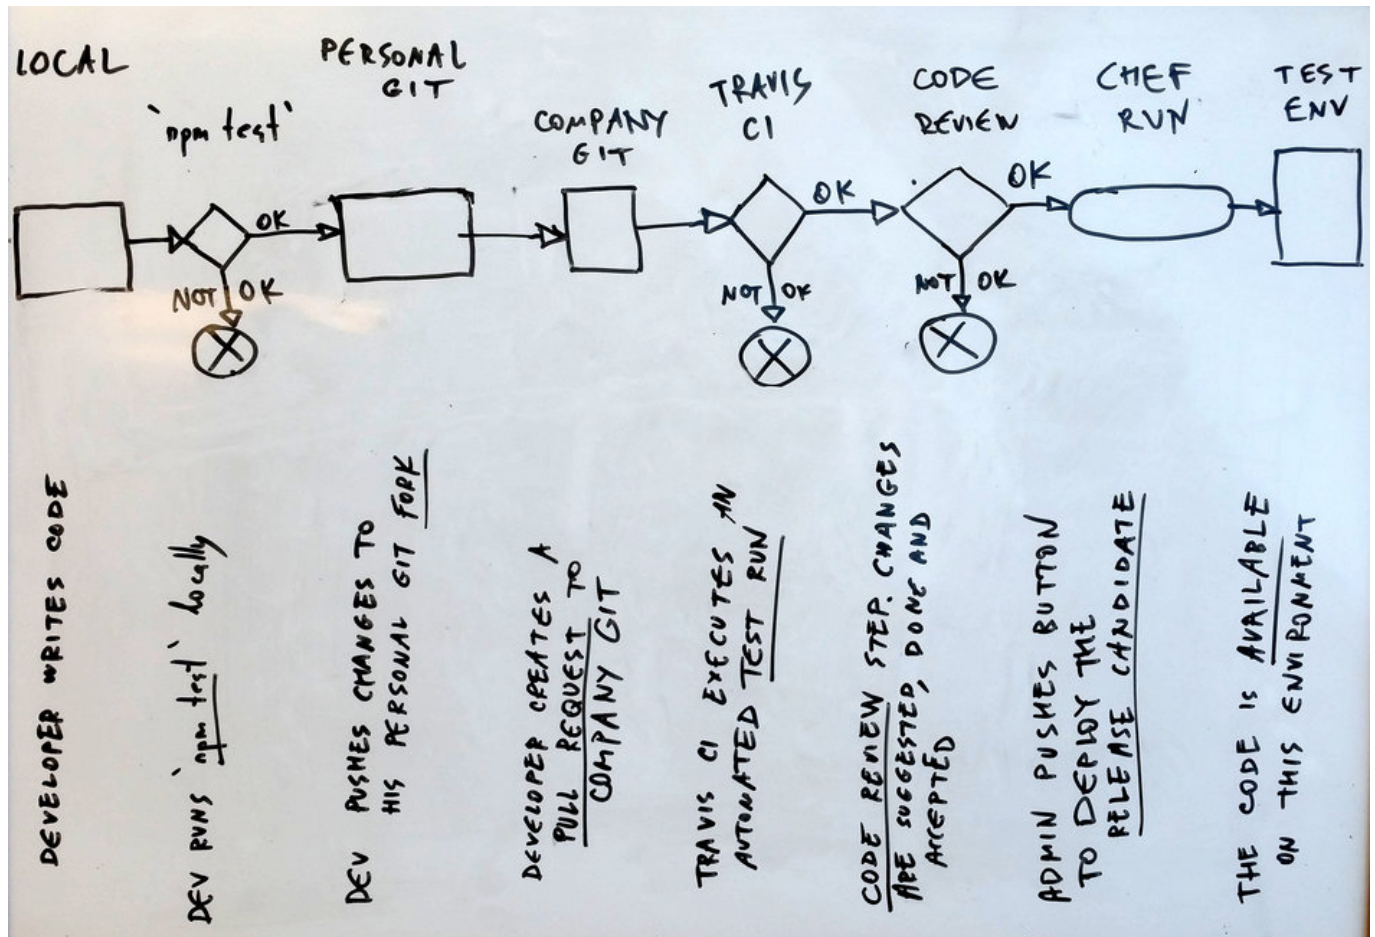 LOCAL
`npm test`
PERSONAL
GIT
COMPANY
GIT
TRAVIS
CI
CODE
REVIEW
CHEF
RUN
TEST
ENV
OK
NOT OK
OK
NOT OK
OK
NOT OK
DEVELOPER WRITES CODE
DEV RUNS `npm test` locally
DEV PUSHES CHANGES TO
HIS PERSONAL GIT FORK
DEVELOPER CREATES A
PULL REQUEST TO
COMPANY GIT
TRAVIS CI EXECUTES AN
AUTOMATED TEST RUN
CODE REVIEW STEP. CHANGES
ARE SUGGESTED, DONE AND
ACCEPTED
ADMIN PUSHES BUTTON
TO DEPLOY THE
RELEASE CANDIDATE
THE CODE IS AVAILABLE
ON THIS ENVIRONMENT